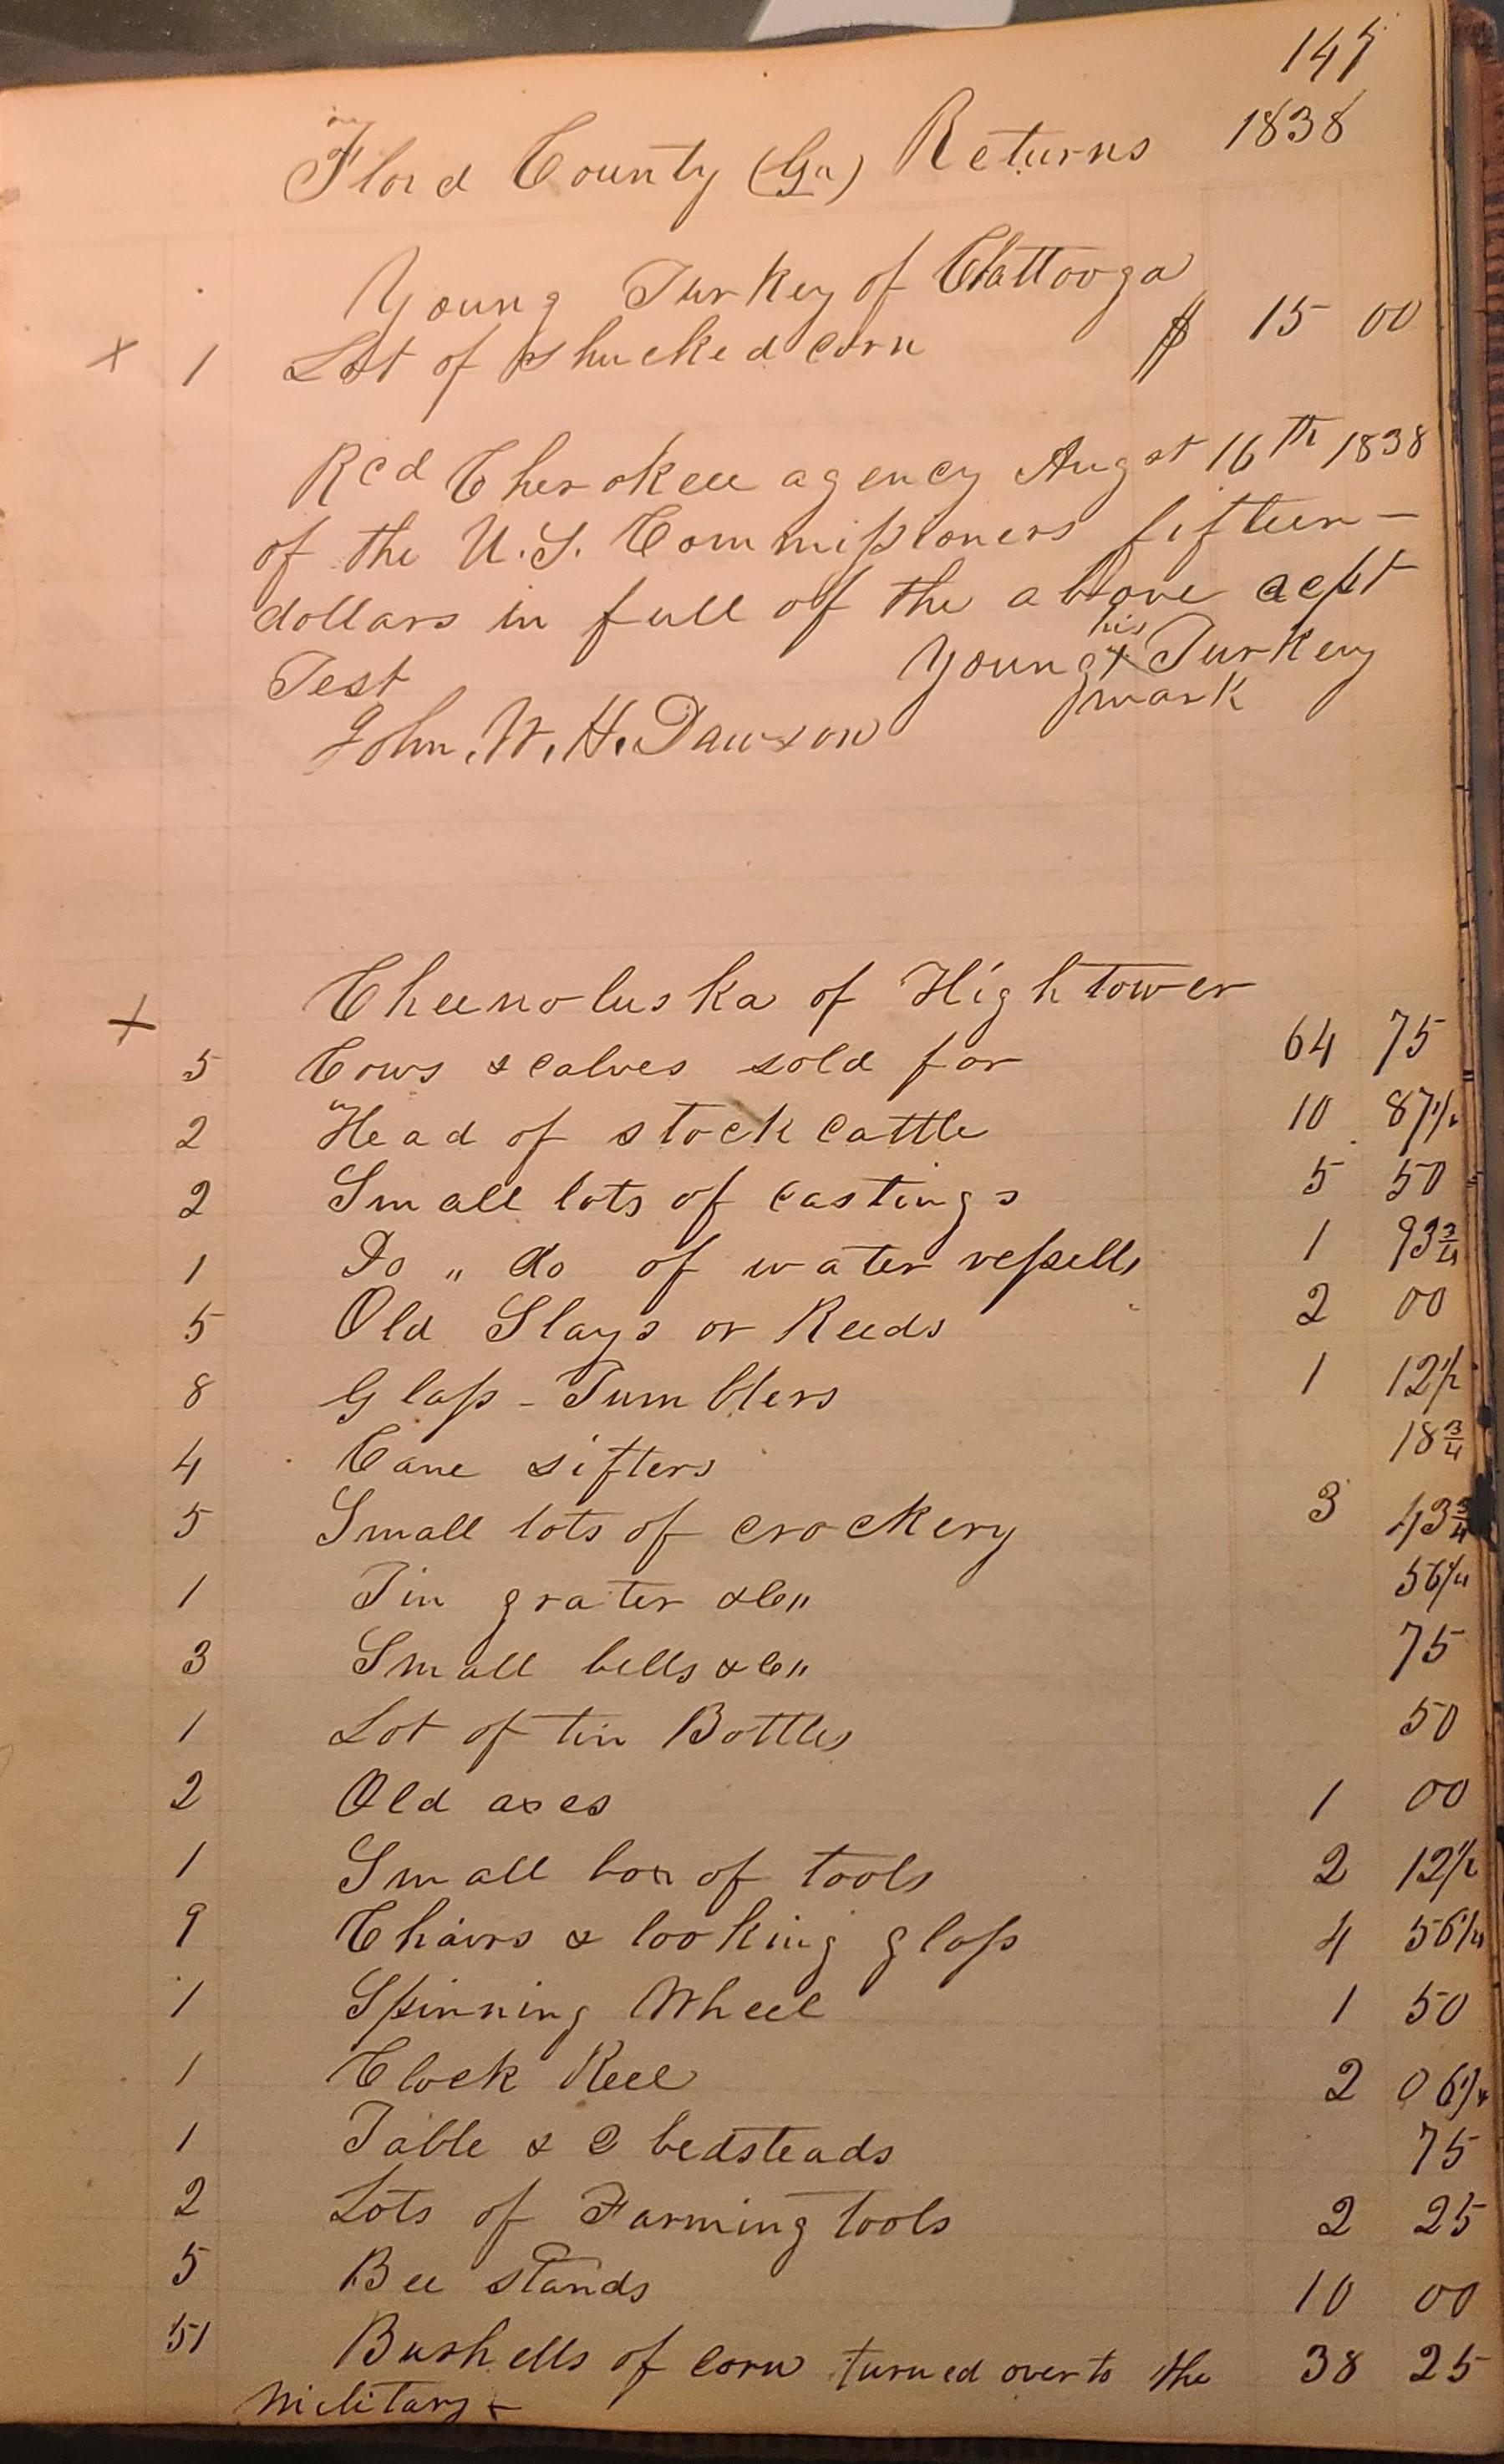 145
Floid County (Ga) Returns 1838
Young Turkey of Chattooga
+ 1 Lot of shucked corn $ 15 00
Rcd Cherokee agency Augst 16th 1838
of the U.S. Commissioners fifteen –
dollars in full of the above acpt
his
Test Young x Turkey
mark
John. W. H. Dawson
+ Cheenoluska of Hightower
5 Cows & calves sold for 64 75
2 Head of stock cattle 10 87 1/2
2 Small lots of castings 5 50
1 Do " do of water vessells 1 93 3/4
5 Old Slays or Reeds 2 00
8 Glass - Tumblers 1 12 1/2
4 Cane sifters 18 3/4
5 Small lots of crockery 3 43 3/4
1 Tin grater &c" 56 1/4
3 Small bells &c" 75
1 Lot of tin Bottles 50
2 Old axes 1 00
1 Small box of tools 2 12 1/2
9 Chairs & looking glass 4 56 1/4
1 Spinning Wheel 1 50
1 Clock Reel 2 06 1/4
1 Table & 2 bedsteads 75
2 Lots of Farming tools 2 25
5 Bee stands 10 00
51 Bushells of corn turned over to the 38 25
Military –